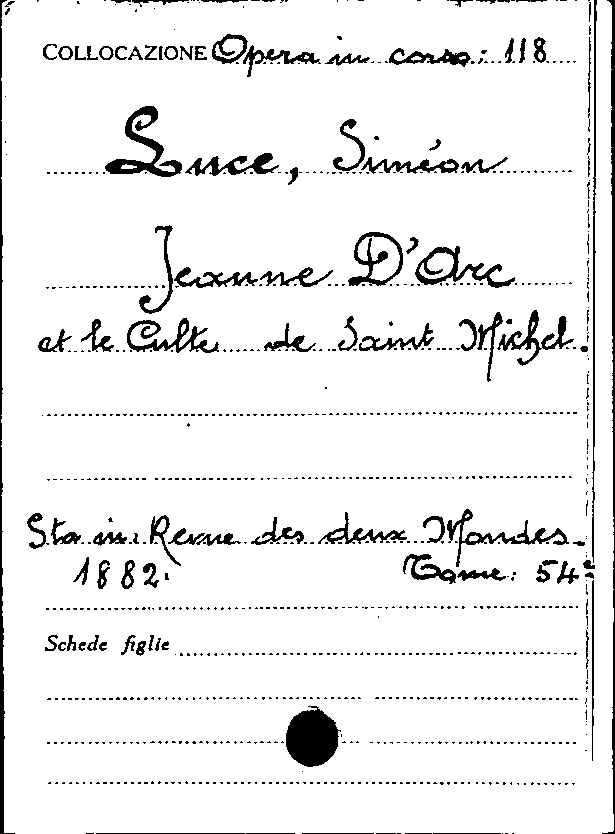 COLLOCAZIONE Opera in corso: 118
Luce, Siméon
Jeanne D'Arc
et le Culte de Saint Michel.
Sta in: Revue des deux Mondes.
1882. Tome: 54º
Schede figlie